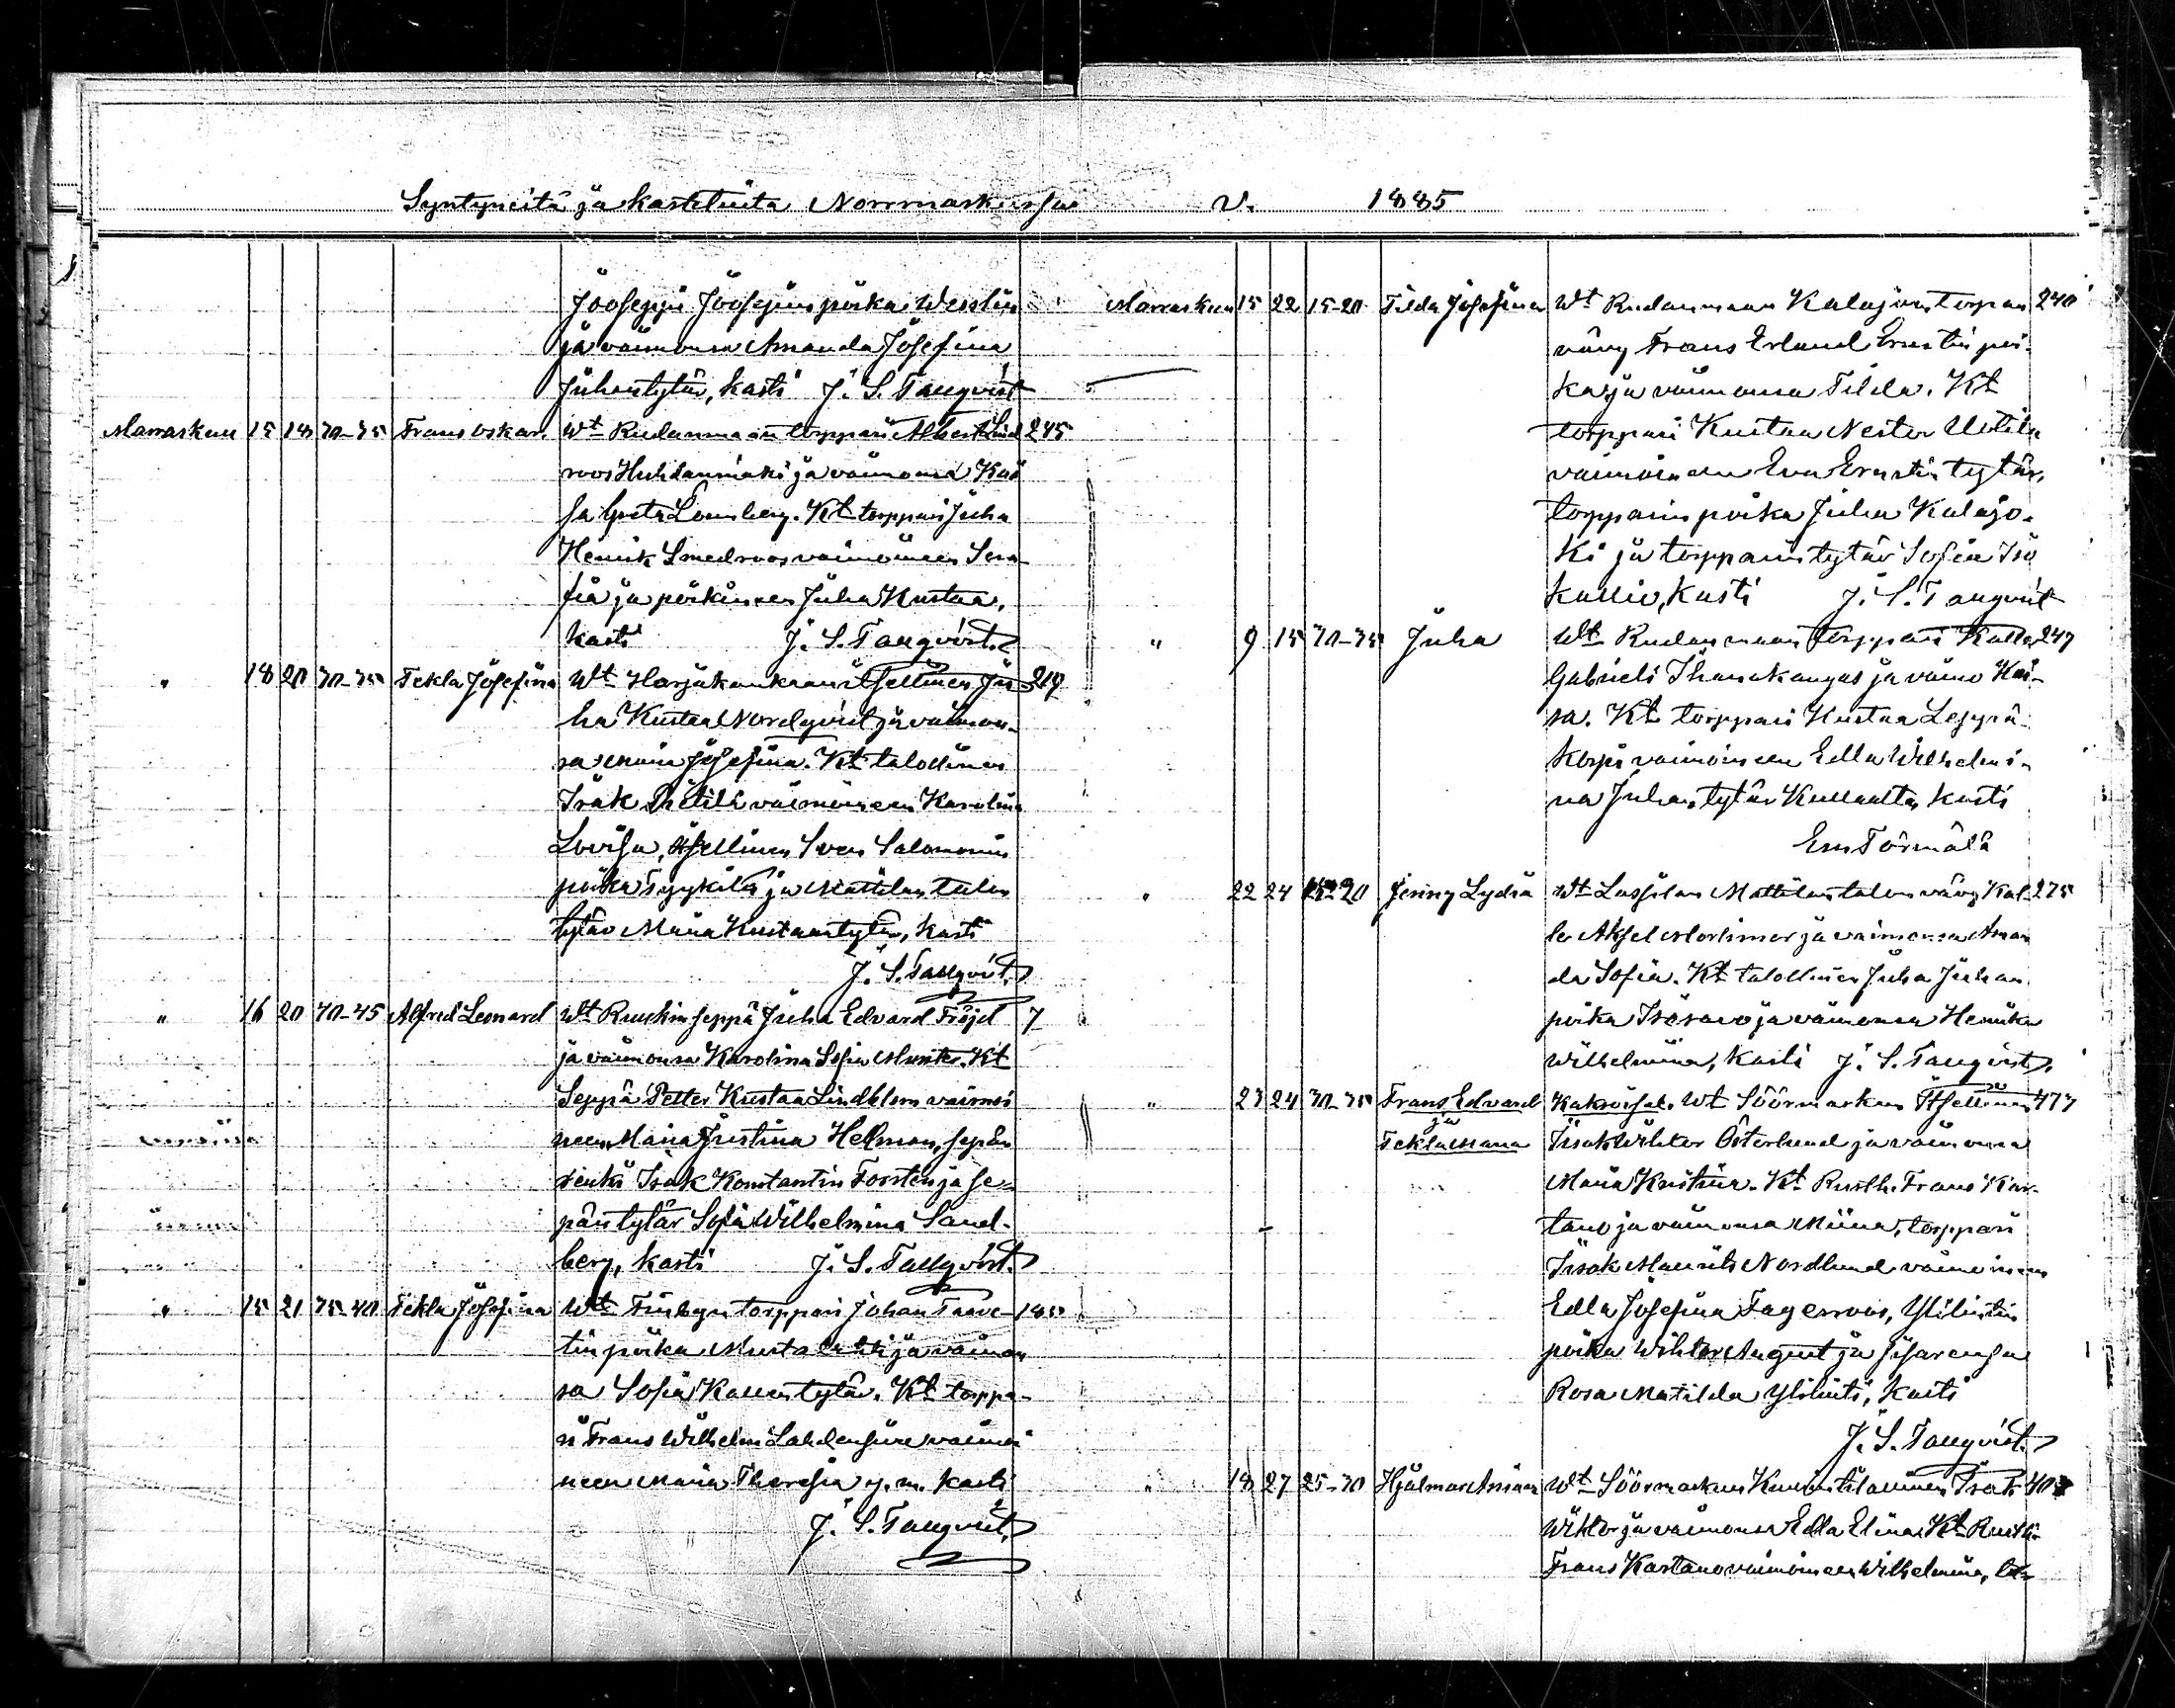 Syntyneitä ja kastetuita Norrmarkussa v. 1885
Jooseppi Joosepin poika Wesslin
ja vaimonsa Amanda Josefina
Juhantytär, kasti J. S. Tanqvist
Marraskuu 15 18 30-35 Frans Oskar. Wt Rudanmaan torppari Albert Lind 245
roos Huhdanmäki ja vaimonsa Kai
sa Greta Lönnberg. Kt torppari Juha
Henrik Smedroos vaimoineen Sera
fia ja poikineen Juha Kustaa,
kasti J. S. Tanqvist.
" 18 20 30-35 Tekla Josefina Wt Harjakankaan itsellinen Ju- 219
ha Kustaa Nordqvist ja vaimon-
sa Maria Josefina. Kt talollinen
Isak Prittilä vaimoineen Karolina
Lovisa, itsellinen Sven Salomonin
poika Tyykilä ja Mattilan talon
tytär Maria Kustaantytär, kasti
J. S. Tanqvist.
" 16 20 40-45 Alfred Leonard Wt Ruukin seppä Juha Edvard Fröjd 7
ja vaimonsa Karolina Sofia Munter. Kt
Seppä Petter Kustaa Lindblom vaimoi
neen Maria Justina Helman, sepän
renki Isak Konstantin Forsten ja se-
päntytär Sofia Wilhelmina Sand-
berg, kasti J. S. Tanqvist.
" 15 21 35-40 Tekla Josefina Wt Finbyn torppari Johan Taave- 145
tinpoika Mustalahti ja vaimon
sa Sofia Kallentytär. Kt torppa-
ri Frans Wilhelm Lahdensuu vaimoi
neen Maria Theresia y. m. kasti
J. S. Tanqvist.
Marraskuu 15 22 15-20 Tilda Josefina Wt Rudanmaan Kalajoen torpan 240
vävy Frans Erland Ernstin poi-
ka ja vaimonsa Tilda. Kt
torppari Kustaa Nestor Uotila
vaimoineen Eva Ernstin tytär,
torpparin poika Juha Kalajo-
ki ja torpparin tytär Sofia Iso
kallio, kasti J. S. Tanqvist
" 9 15 30-35 Juha Wt Rudanmaan torppari Kalle 247
Gabrieli Ihanakangas ja vaimo Kai-
sa. Kt torppari Kustaa Leppä-
korpi vaimoineen Edla Wilhelmi-
na Juhantytär Kullaalta, kasti
Em Törmälä
" 22 24 20 Jenny Lydia Wt Lassilan Mattilan talon vävy Kal- 275
le Aksel Mortimer ja vaimonsa Aman
da Sofia. Kt talollinen Juha Juhan
poika Isosavo ja vaimonsa Henrika
Wilhelmina, kasti J. S. Tanqvist.
" 23 24 30-35 Frans Edvard Kaksoiset. Wt Söörmarkun Itsellinen 477
ja
Tekla Maria Iisak Wihtor Österlund ja vaimonsa
Maria Kristina. Kt Rusth. Frans Kar-
tano ja vaimonsa Miina, torppari
Iisak Maurits Nordlund vaimoineen
Edla Josefina Fagerroos, Ylilustin
poika Wihtor August ja sisarensa
Rosa Matilda Ylilusti, kasti
J. S. Tanqvist.
" 18 27 25-30 Hjalmar Armas Wt Söörmarkun Isak 40
Wihtor ja vaimonsa Edla Elina. Kt Rusth.
Frans Kartano vaimoineen Wilhelmina,